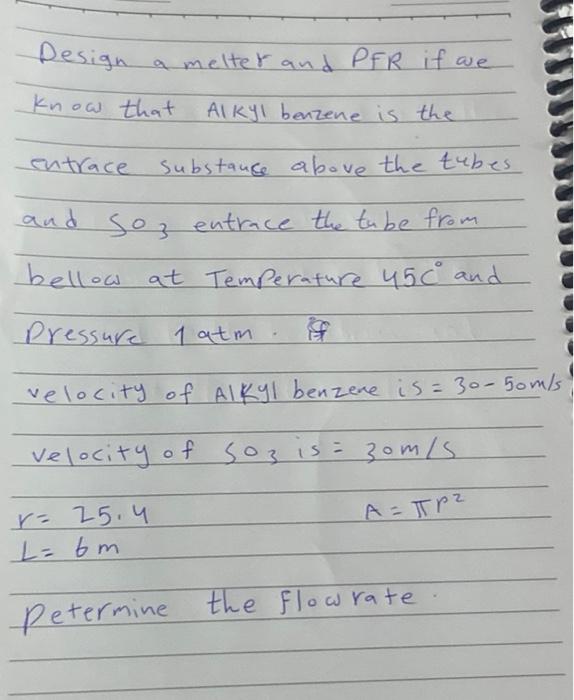 Design a melter and PFR if we
know that Alkyl benzene is the
entrace substance above the tubes
and SO3 entrace the tube from
bellow at Temperature 45C° and
Pressure 1 atm.
velocity of Alkyl benzene is = 30-50m/s
velocity of SO3 is = 30m/s
r= 25.4 A = πr²
L= 6m
Determine the flow rate.